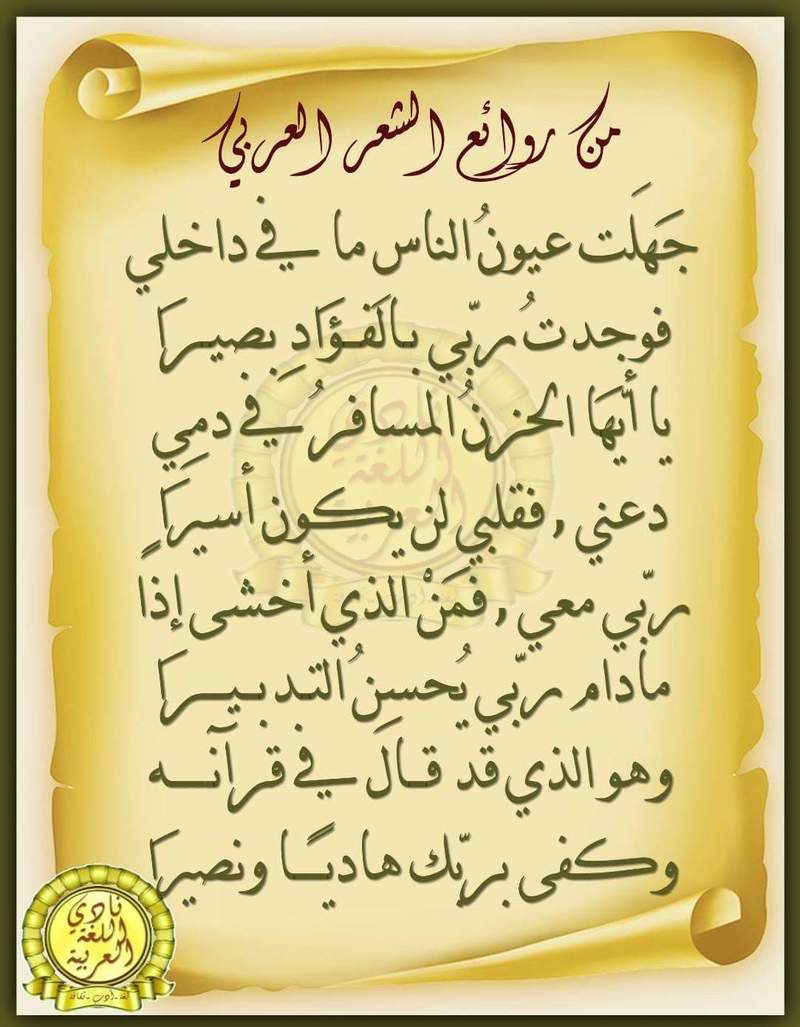 من روائع الشعر العربي
جَهَلَت عيونُ الناس ما في داخلي
فوجدتُ ربّي بالَفؤَادِ بصيرَا
يا أيّهَا الحزنُ المسافرُ في دمِي
دعني , فقلبي لن يكون أسيرَا
ربّي معي , فمَنْ الذي أخشى إذاً
مادام ربّي يُحسِنُ التدبيرَا
وهو الذي قد قالَ في قرآنه
وكفى بربّك هاديًا ونصيرَا
نادي
اللغة
العربية
لغة - أدب - ثقافة